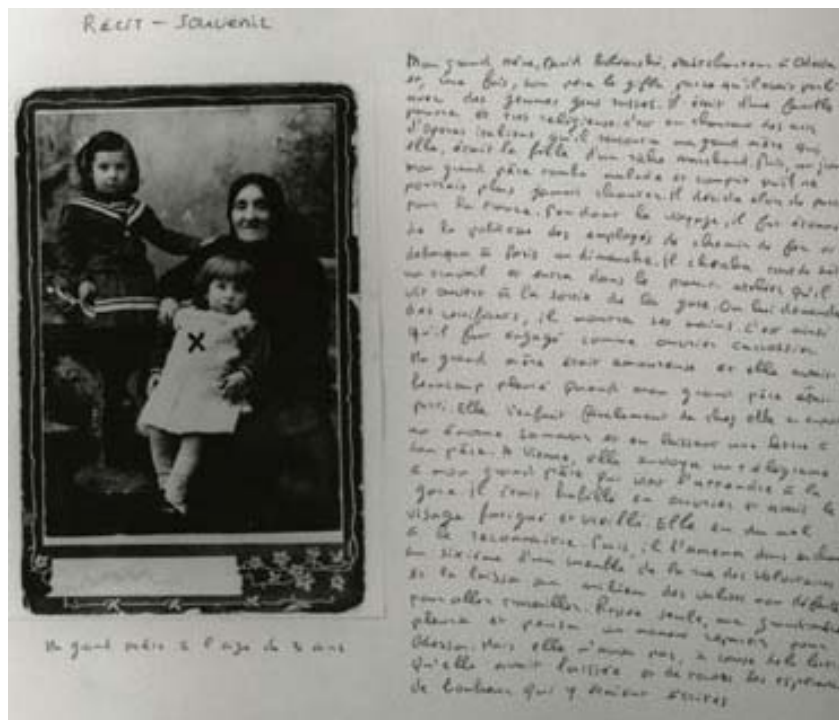 RÉCIT - SOUVENIR
Mon grand père, David, était chanteur à Odessa
et, une fois, son père le gifla parce qu'il avait parlé
avec des jeunes gens russes. Il était d'une famille
pauvre et très religieuse. C'est en chantant des airs
d'opéras italiens qu'il rencontra ma grand mère qui,
elle, était la fille d'un riche marchand. Puis, un jour
mon grand père tomba malade et comprit qu'il ne
pourrait plus jamais chanter. Il décida alors de partir
pour la France. Pendant le voyage, il fut étonné
de la politesse des employés de chemin de fer et
débarqua à Paris un dimanche. Il chercha tout de suite
un travail et entra dans le premier atelier qu'il
vit ouvert à la sortie de la gare. On lui demanda
des certificats, il montra ses mains. C'est ainsi
qu'il fut engagé comme ouvrier
Ma grand mère était amoureuse et elle avait
beaucoup pleuré quand mon grand père était
parti. Elle s'enfuit finalement de chez elle en emportant
un énorme samovar et en laissant une lettre à
son père. A Vienne, elle envoya un télégramme
à mon grand père qui vint l'attendre à la
gare. Il était habillé en ouvrier et avait le
visage fatigué et vieilli. Elle eu du mal
à le reconnaître. Puis, il l'amena dans
au sixième d'un meublé de la rue des Volontaires
et la laissa au milieu des valises non défaites
pour aller travailler. Restée seule, ma grand mère
pleura et pensa un moment repartir pour
Odessa. Mais elle n'osa pas, à cause de la lettre
qu'elle avait laissée et de toutes les espérances
de bonheur qui y étaient écrites
Ma grand mère à l'age de 3 ans